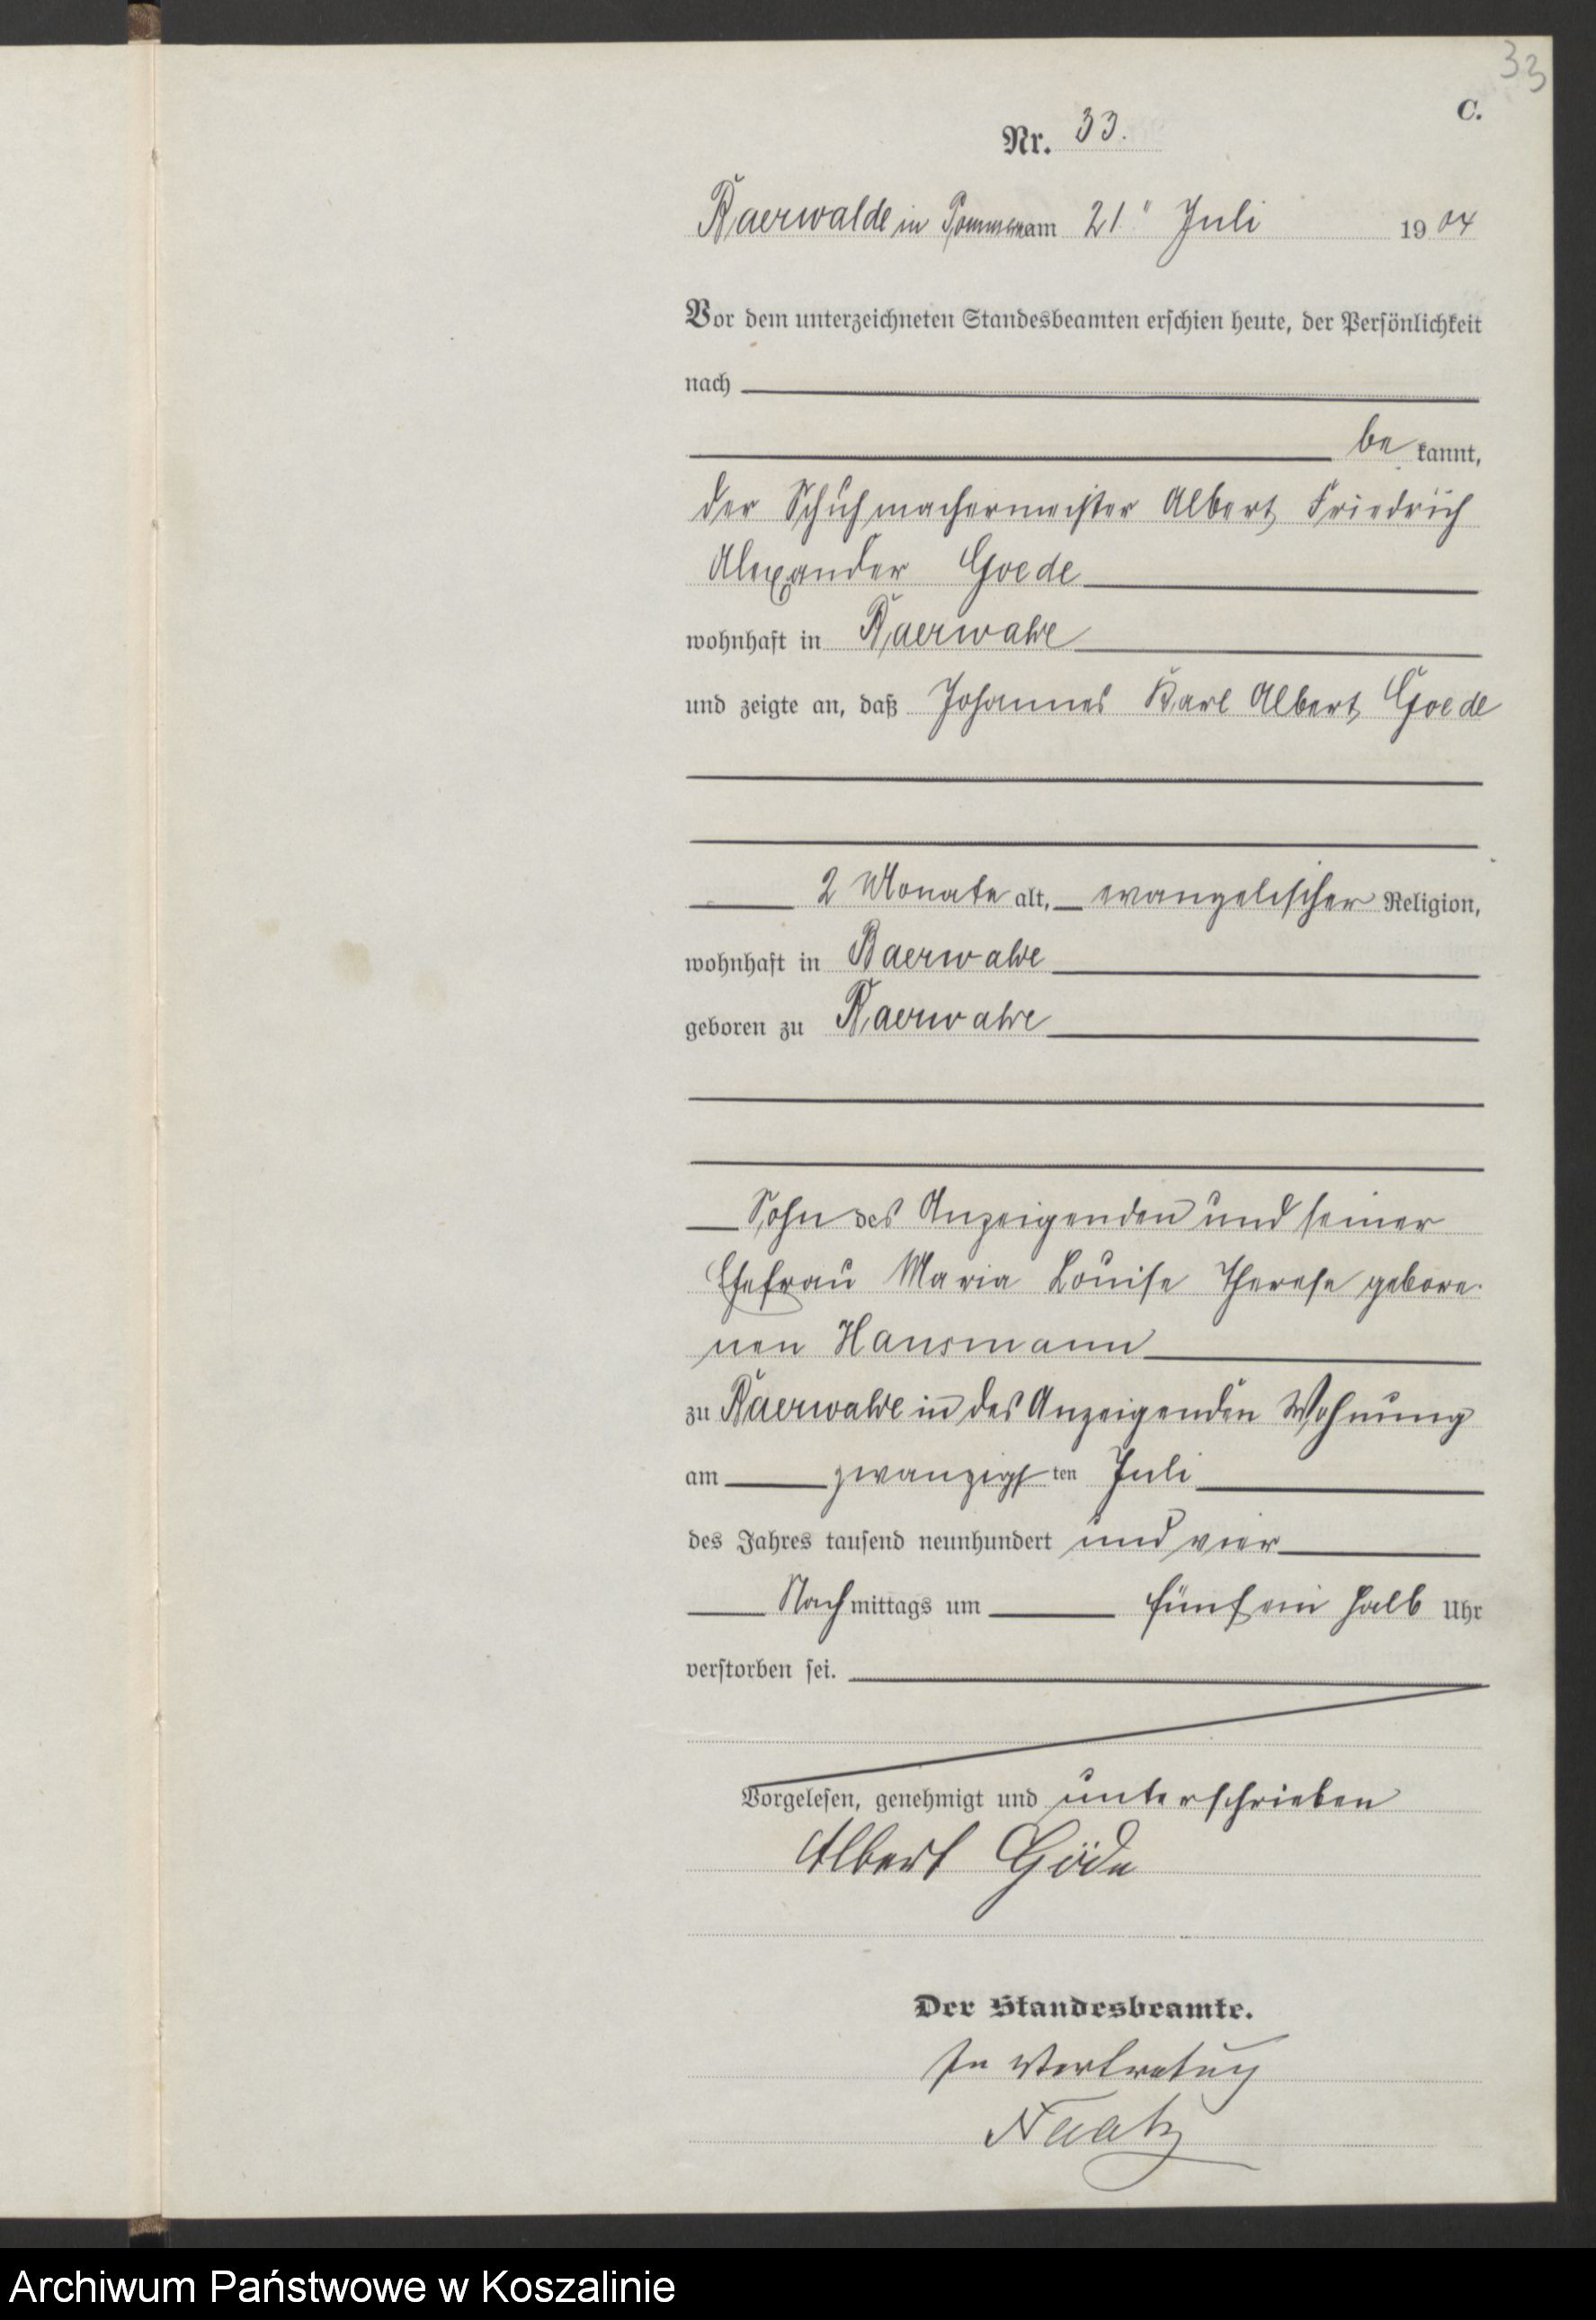 33
C.
Nr. 33.
Baerwalde in Pommern am 21ten Juli 1904
Vor dem unterzeichneten Standesbeamten erschien heute, der Persönlichkeit
nach
be kannt,
der Schuhmachermeister Albert Friedrich
Alexander Goede
wohnhaft in Baerwalde
und zeigte an, daß Johannes Karl Albert Goede
2 Monate alt, evangelischer Religion,
wohnhaft in Baerwalde
geboren zu Baerwalde
Sohn des Anzeigenden und seiner
Ehefrau Maria Louise Therese gebore-
nen Hausmann
zu Baerwalde in des Anzeigenden Wohnung
am zwanzigsten Juli
des Jahres tausend neunhundert und vier
Nachmittags um fünf ein halb Uhr
verstorben sei.
Vorgelesen, genehmigt und unterschrieben
Albert Göde
Der Standesbeamte.
In Vertretung
Naatz
Archiwum Państwowe w Koszalinie